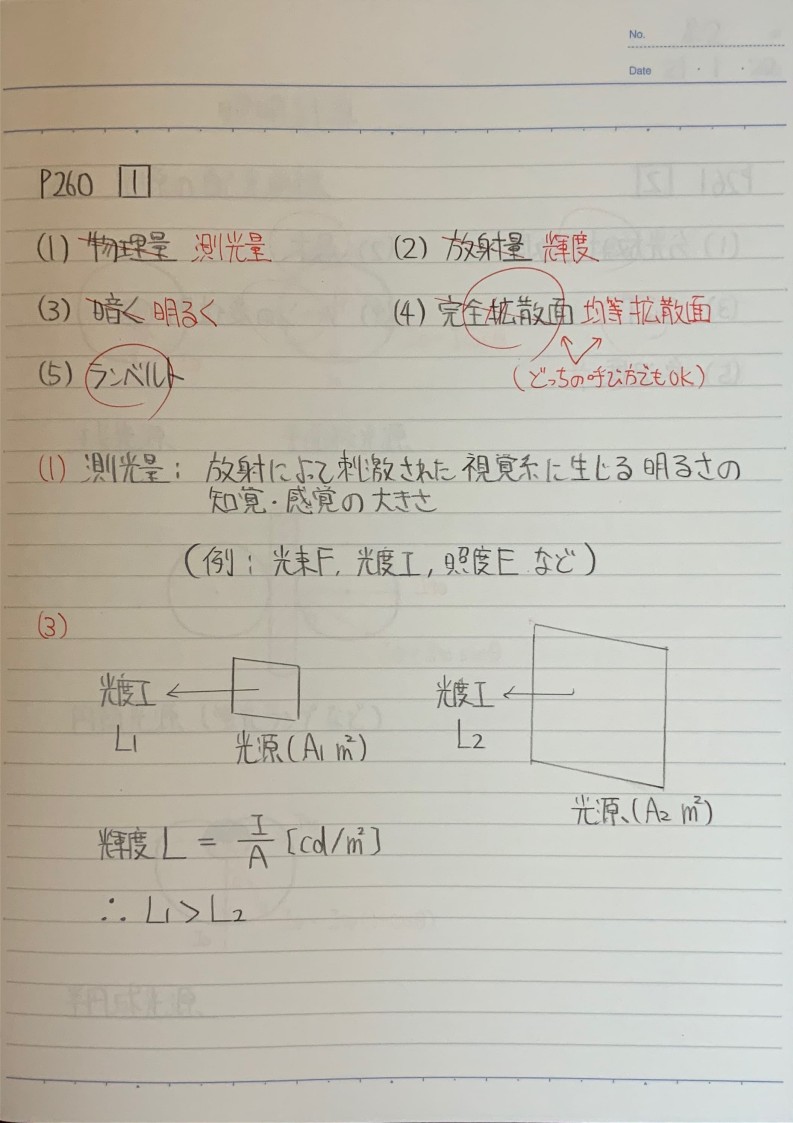 No.
Date
P260 1
(1) 物理量 測光量 (2) 放射量 輝度
(3) 暗く 明るく (4) 完全拡散面 均等拡散面
(5) ランベルト (どっちの呼び方でもOK)
(1) 測光量: 放射によって刺激された視覚系に生じる明るさの
知覚・感覚の大きさ
(例: 光束F, 光度I, 照度E など)
(3)
光度I ← 光度I ←
L₁ 光源(A₁ m²) L₂
光源(A₂ m²)
輝度 L = I/A [cd/m²]
∴ L₁ > L₂